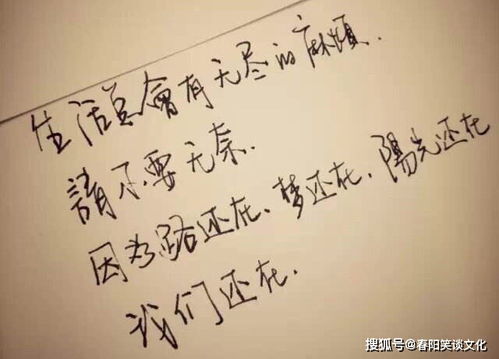 生活总會有无尽的麻烦.
請不要无奈.
因为路还在、梦还在、陽光还在
我们还在.
搜狐号@春阳笑谈文化